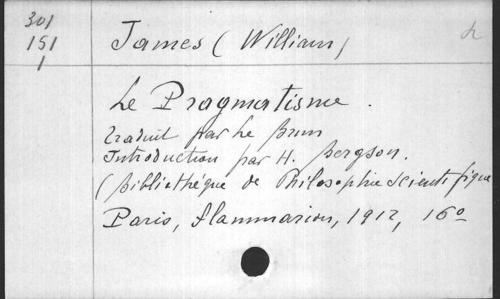 301
151
1
James (William)
h
Le Pragmatisme.
traduit par Le Brun
Introduction par H. Bergson.
(Bibliothéque de Philosophie scientifique
Paris, Flammarion, 1912, 16o